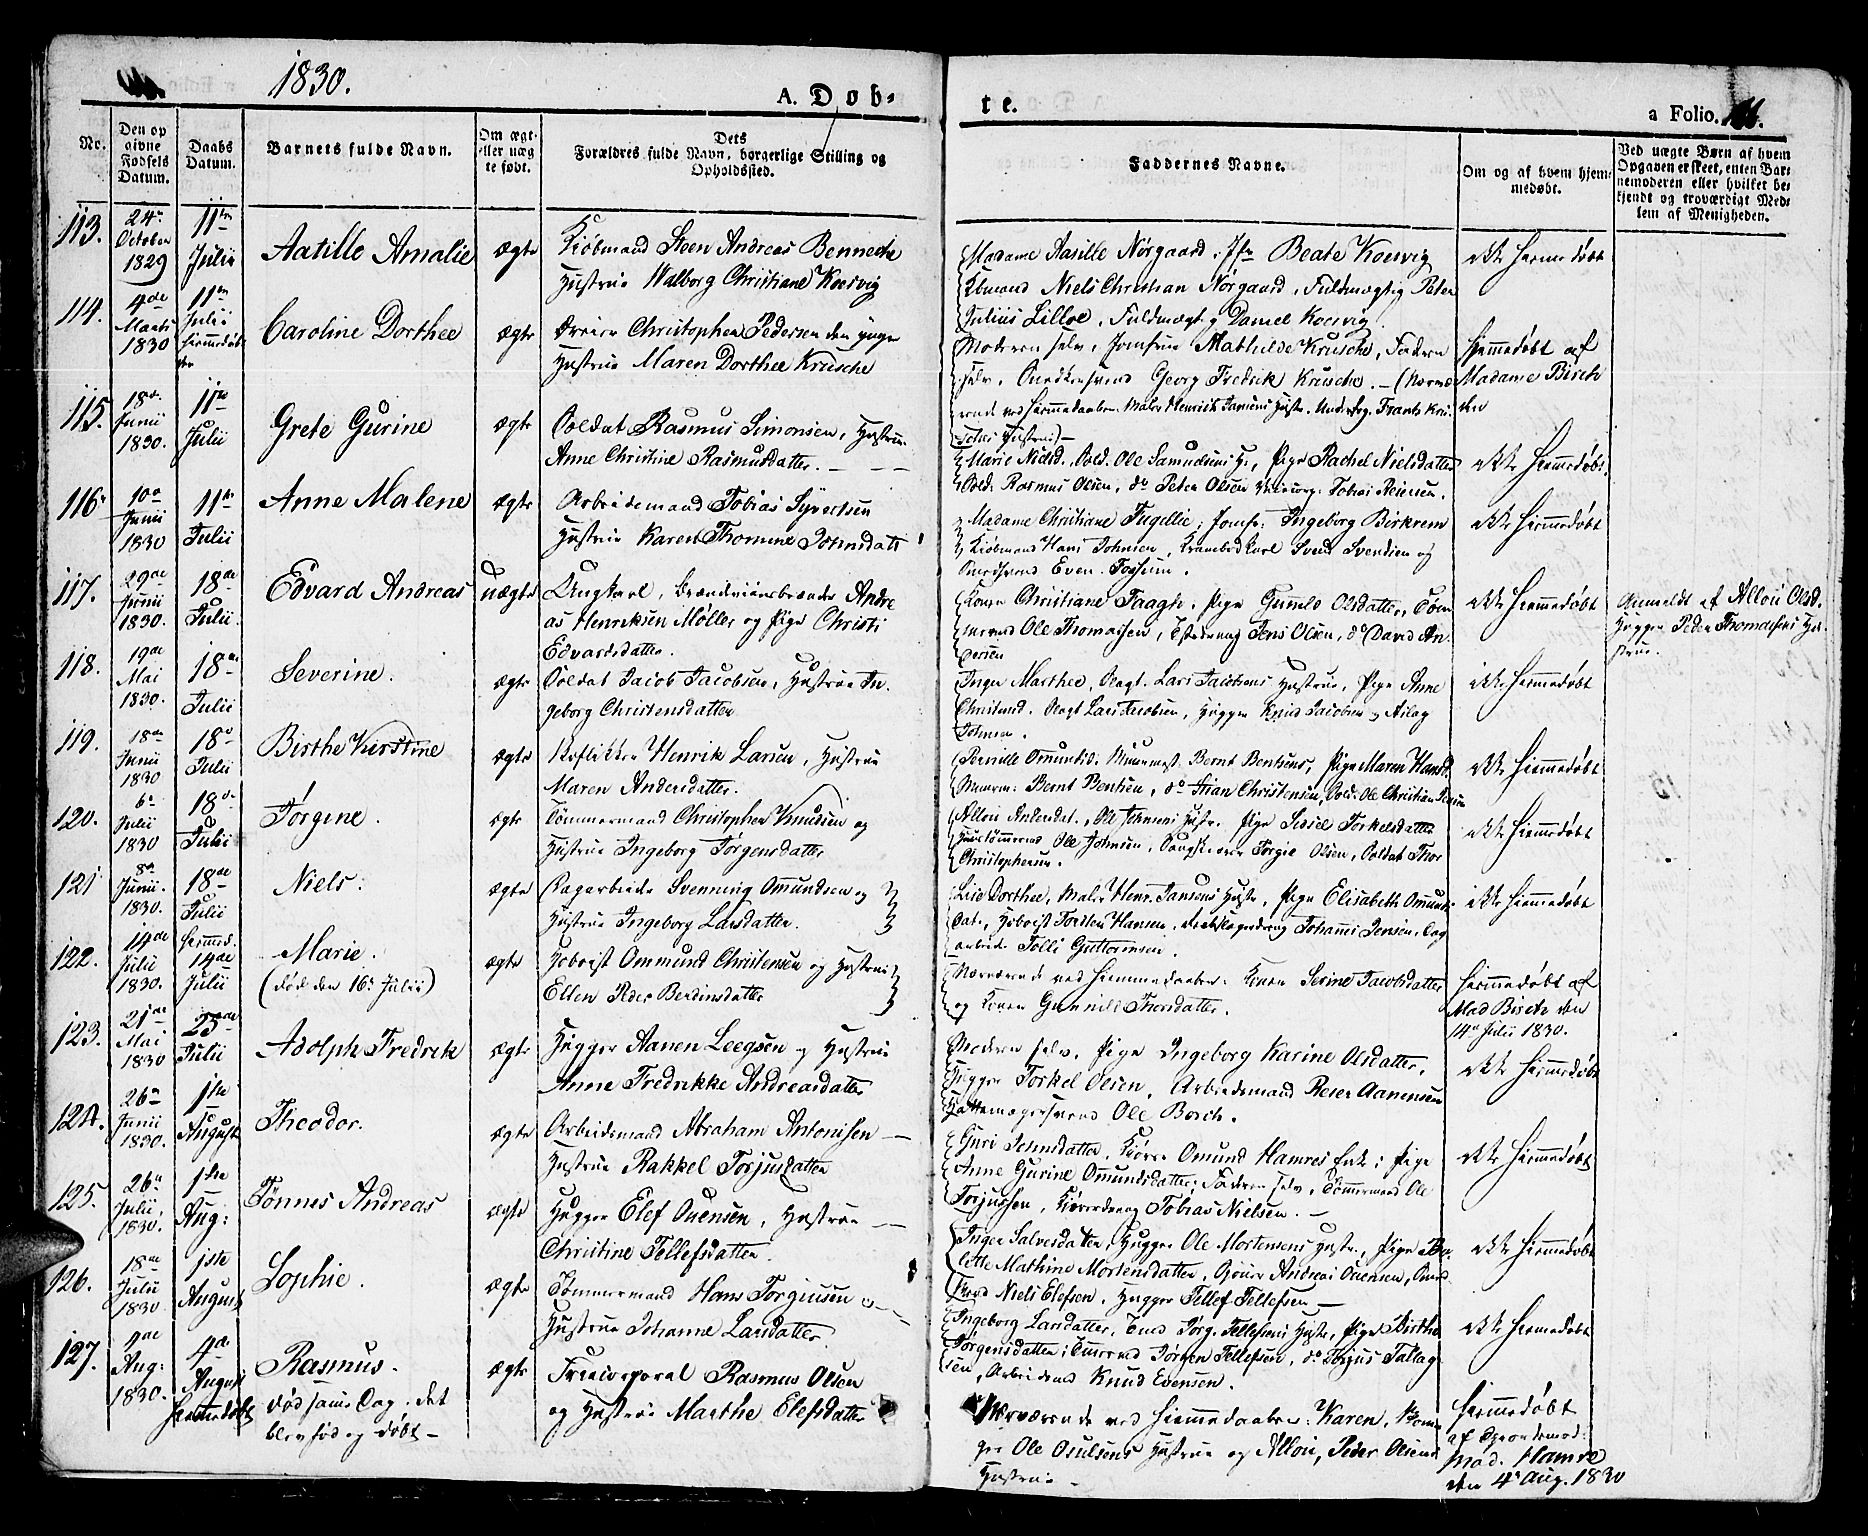 1830.
A. Døb-
te.
a Folio.
No.
Den op
givne
Fødsels
Datum.
Daabs
Datum.
Barnets fulde Navn.
Om ægt-
eller uæg
te født.
Dets
Forældres fulde Navn, borgerlige Stilling og
Opholdssted.
Faddernes Navne.
Om og af hvem hjem-
medøbt.
Ved uægte Børn af hvem
Opgaven er skeet, enten Bar-
nemoderen eller hvilket be-
kjendt og troværdigt Med-
lem af Menigheden.
113.
24de
October
1829
11te
Julii
Aatille Amalie
ægte
Kiøbmand Steen Andreas Benneche
Hustrue Walborg Christiane Koesvig
Madame Aasille Nørgaard, Jfr Beate Koesvig
Kbmand Niels Christian Nørgaard, Fuldmægtig Peter
Julius Lilloe, Fuldmægt. Daniel Koesvig.
ikke hiemmedøbt
114.
4de
Marts
1830
11te
Julii
Caroline Dorthee
ægte
Christopher Pedersen den yngre
Hustrue Maren Dorthee Krusche
Moderen selv, Jomfrue Mathilde Krusche, Faderen
selv, Georg Fredrik Krusche. — (Nærvæ-
rende ved hiemmedaaben. Maler Henrik Jansens Hustr. Frants Kru-
sches Hustrue) —
hjemmedøbt af
Madame Birch
den
115.
18de
Junii
1830.
11te
Julii
Grete Gurine
ægte
Soldat Rasmus Simonsen, Hustrue
Anne Christine Rasmusdatter. — — —
Marie Nielsd. Sold. Ole Samuelsens H., Pige Rachel Nielsdatter
Sold. Rasmus Olsen, do Peter Olsen Tobias Reiersen.
ikke hiemmedøbt.
116.
10de
Junii
1830
11te
Julii
Anne Malene
ægte
Arbeidsmand Tobias Syvertsen
Hustrue Karen Thomine Johnsdatt
Madame Christiane Fugellie, Jomfr. Ingeborg Birkrem
Kiøbmand Hans Johnsen, Svend Svendsen og
Even Fossum.
ikke hiemmedøbt
117.
29de
Junii
1830.
18de
Julii.
Edvard Andreas
uægte
Ungkarl, Brændeviinsbrænder Andre
as Henriksen Møller og Pige Christi
Edvardsdatter.
Konen Christiane Faagh, Pige Gunild Olsdatter, Tøm
mermd Ole Thomassen, Jens Olsen, do David An
dersen
ikke hiemmedøbt
Anmeldt af Alloü Olsd.
Hugger Peder Thomæsens Hu-
strue.
118.
19de
Mai
1830.
18de
Julii
Severine.
ægte
Soldat Jacob Jacobsen, Hustrue In-
geborg Christensdatter
Inger Marthee, Lars Jacobsens Hustrue, Pige Anne
Christensd. Lars Jacobsen, Hugger Knud Jacobsen og Aslag
Johnsen.
ikke hiemmedøbt
119.
18de
Junii
1830
18de
Julii
Birthe Kirstine
ægte
Henrik Larsen, Hustrue
Maren Andersdatter.
Pernille Omundsd. Muurmest. Bernt Bentsens, Pige Maren Hansd.
Muurm. Bernt Bentsen, do Stian Christensen, Sold. Ole Christian Jensen
ikke hiemmedøbt
120.
6te
Julii
1830
18de
Julii
Jørgine.
ægte
Tømmermand Christopher Knudsen og
Hustrue Ingeborg Jørgensdatter
Alloü Anlendat., Ole Johnsens Hustr. Pige Sidsel Torkelsdatter
Huustømmermd Ole Johnsen, Torgie Olsen, Soldat Thor
Christophersen.
ikke hiemmedøbt
121.
8de
Junii.
1830.
18de
Julii
Niels.
ægte
Dagarbeider Svenning Omundsen og
Hustrue Ingeborg Larsdatter.
Lise Dorthee, Maler Henr. Jansens Hustr., Pige Elisabeth Omunds-
dat., Hoboist Torsten Hansen, Johannes Jensen, Dag
arbeider Tolli Guttormsen.
ikke hiemmedøbt
122.
14de
Julii
1830.
hiemmed.
14de
Julii
Marie.
(død den 16de Julii)
ægte
Hoboist Ommund Christensen og Hustrue
Ellen Peder Berdinsdatter
Nærværende ved hiemmedaaben: Konen Serine Jacobsdatter
og Konen Gunnild Thorsdatter.
hiemmedøbt af
Mad Birch den
14de Julii 1830.
123.
21de
Mai
1830
25de
Julii
Adolph Fredrik
ægte
Hugger Aanen Leegsen og Hustrue
Anne Fredrikke Andreasdatter
Moderen selv, Pige Ingeborg Karine Olsdatter,
Hugger Torkel Olsen, Arbeidsmand Reier Aanensen
Hattemagersvend Ole Borch.
ikke hiemmedøbt
124.
26de
Junii
1830.
1ste
August
Theodor.
ægte
Arbeidsmand Abraham Antonisen —
Hustrue Rakkel Torjusdatter
Guri Johnsdatter, Kiører Omund Hamres Enke; Pige
Anne Gurine Omundsdatter; Faderen selv, Tømmermand Ole
Torjussen, Tobias Nielsen. —
ikke hiemmedøbt
125.
26de
Julii,
1830.
1ste
Aug:
Tønnes Andreas
ægte
Hugger Elef Ouensen, Hustrue —
Christine Tellefsdatter.
Inger Salvesdatter, Hugger Ole Mortensens Hustr., Pige
Mathine Mortensdatter, Andreas Ouensen,
Niels Elefsen, Hugger Tellef Tellefsen —
ikke hiemmedøbt
126.
18de
Julii
1830
1ste
August
Sophie.
ægte
Tømmermand Hans Torgiusen og
Hustrue Johanne Larsdatter
Ingeborg Larsdatter, Jørg. Tellefsens Hustr., Pige Birthe
Jørgensdatter; Jørgen Tellefsen, do Torjus Tallag-
sen, Arbeidsmd Knud Evensen.
ikke hiemmedøbt
127.
4de
Aug:
1830.
4de
August
hiemmedøbt
Rasmus.
død samme Dag, det
blev fød og døbt —
ægte
Friecorporal Rasmus Olsen
og Hustrue Marthe Elefsdatter
Nærværende ved hiemmedaaben: Karen,
Ole Osulsens Hustrue og Alloü, Peder Olsens
Hustrue —
hiemmedøbt
af Gjordemod:
Mad. Hamre
den 4de Aug. 1830